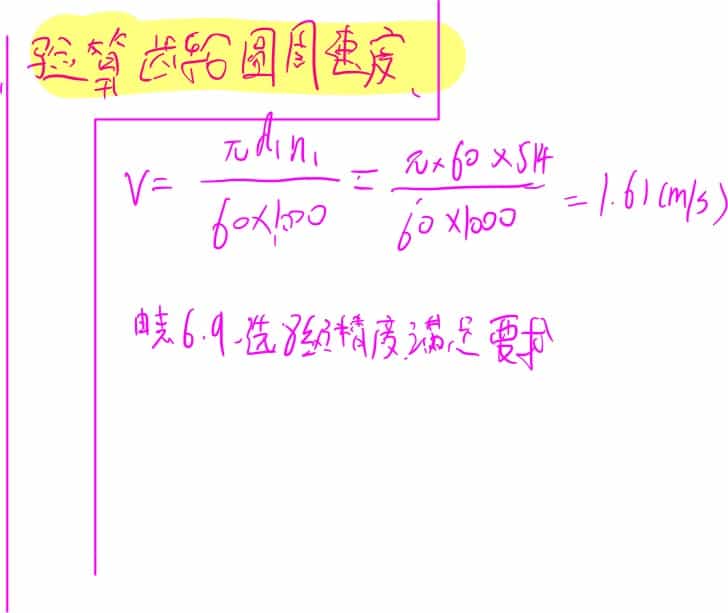 验算齿轮圆周速度
V = \frac{πd₁n₁}{60×1000} = \frac{π×60×514}{60×1000} = 1.61(m/s)
由表6.9.选8级精度满足要求